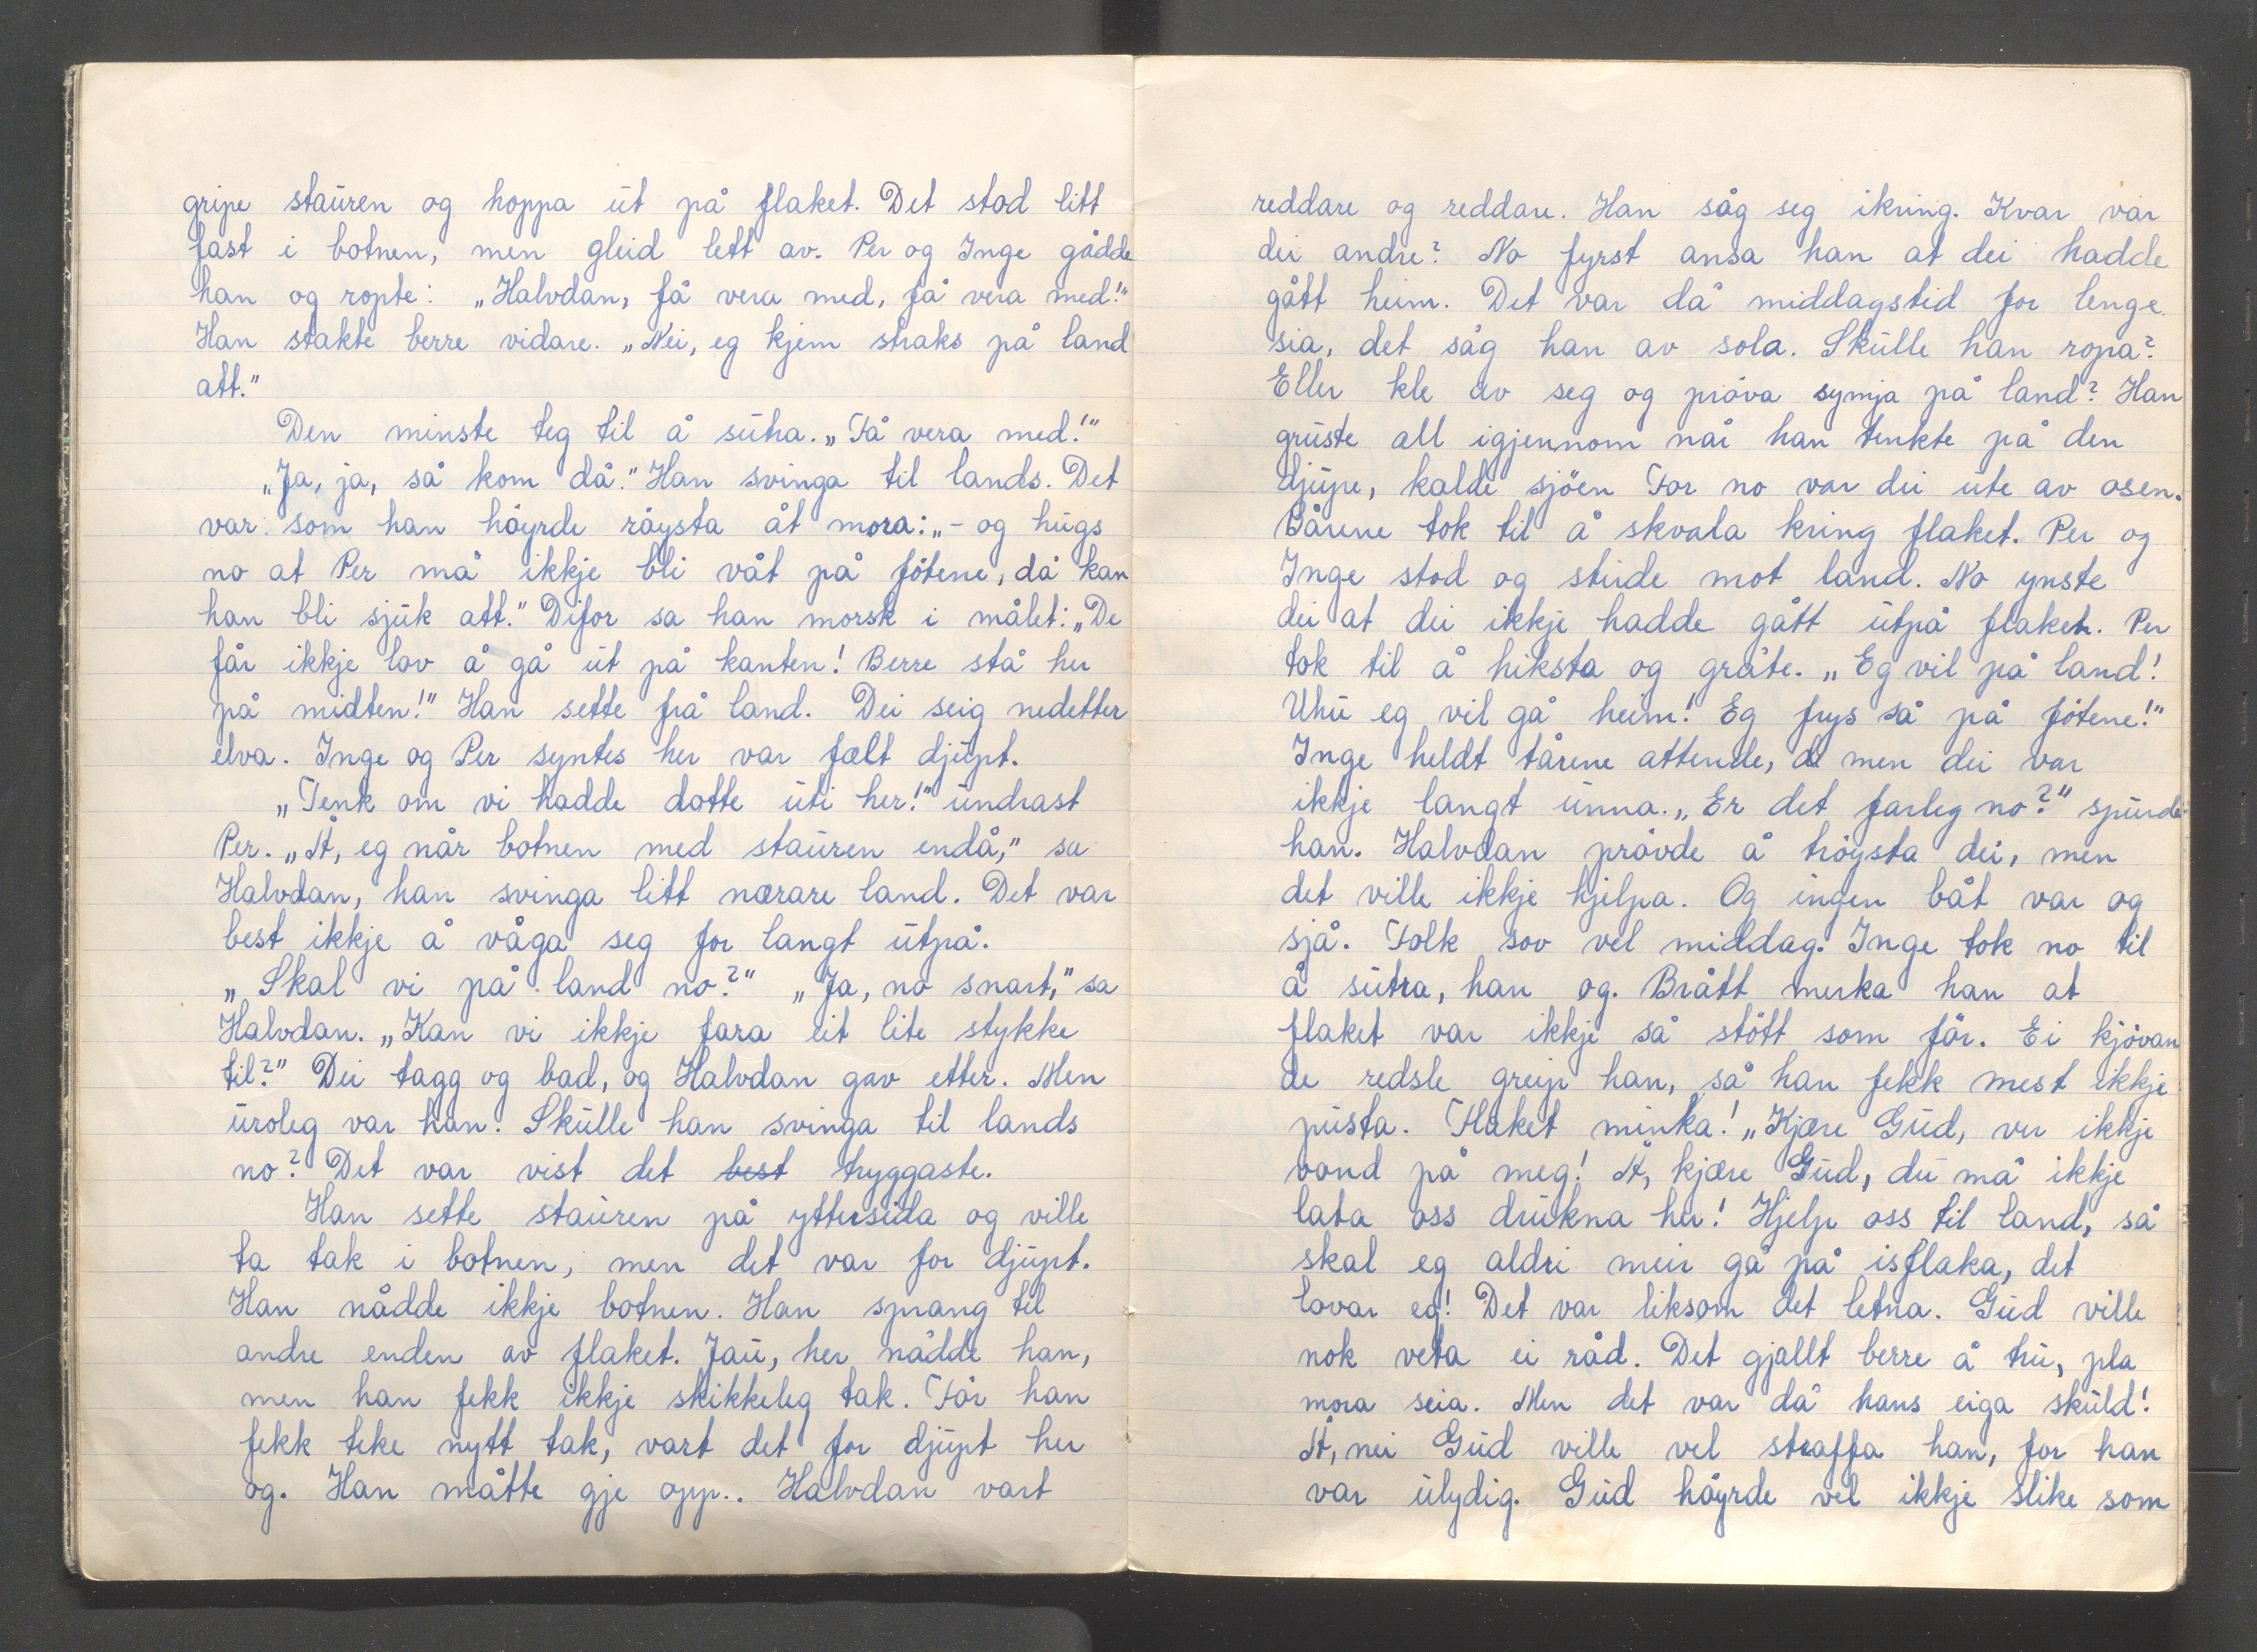 gripe stauren og hoppa ut på flaket. Det stod litt
fast i botnen, men gleid lett av. Per og Inge gådde
han og ropte: „Halvdan, få vera med, få vera med!"
Han stakte berre vidare. „Nei, eg kjem straks på land
att."
Den minste teg til å sutra. „Få vera med!"
„Ja, ja, så kom då." Han svinga til lands. Det
var som han höyrde röysta åt mora: „- og hugs
no at Per må ikkje bli våt på fötene, då kan
han bli sjuk att." Difor sa han morsk i målet: „De
får ikkje lov å gå ut på kanten! Berre stå her
på midten!" Han sette frå land. Dei seig nedetter
elva. Inge og Per syntes her var fælt djupt.
„Tenk om vi hadde dotte uti her!" undrast
Per. „Å, eg når botnen med stauren endå," sa
Halvdan, han svinga litt nærare land. Det var
best ikkje å våga seg for langt utpå.
„Skal vi på land no?" „Ja, no snart," sa
Halvdan. „Kan vi ikkje fara eit lite stykke
til?" Dei tagg og bad, og Halvdan gav etter. Men
uroleg var han. Skulle han svinga til lands
no? Det var vist det best tryggaste.
Han sette stauren på yttersida og ville
ta tak i botnen, men det var for djupt.
Han nådde ikkje botnen. Han sprang til
andre enden av flaket. Jau, her nådde han,
men han fekk ikkje skikkeleg tak. För han
fekk teke nytt tak, vart det for djupt her
og. Han måtte gje opp.. Halvdan vart
reddare og reddare. Han såg seg ikring. Kvar var
dei andre? No fyrst ansa han at dei hadde
gått heim. Det var då middagstid for lenge
sia, det såg han av sola. Skulle han ropa?
Eller kle av seg og pröva symja på land? Han
gruste all igjennom når han tenkte på den
djupe, kalde sjöen For no var dei ute av osen.
Bårene tok til å skvala kring flaket. Per og
Inge stod og stirde mot land. No ynste
dei at dei ikkje hadde gått utpå flaket. Per
tok til å hiksta og gråte. „Eg vil på land!
Uhu eg vil gå heim! Eg frys så på fötene!"
Inge heldt tårene attende, d men dei var
ikkje langt unna. „Er det farleg no?" spurde
han. Halvdan prövde å tröysta dei, men
det ville ikkje hjelpa. Og ingen båt var og
sjå. Folk sov vel middag. Inge tok no til
å sutra, han og. Brått merka han at
flaket var ikkje så stött som för. Ei kjövan
de redsle greip han, så han fekk mest ikkje
pusta. Flaket minka! „Kjære Gud, ver ikkje
vond på meg! Å, kjære Gud, du må ikkje
lata oss drukna her! Hjelp oss til land, så
skal eg aldri meir gå på isflaka, det
lovar eg! Det var liksom det letna. Gud ville
nok veta ei råd. Det gjallt berre å tru, pla
mora seia. Men det var då hans eiga skuld!
Å, nei Gud ville vel straffa han, for han
var ulydig. Gud höyrde vel ikkje slike som